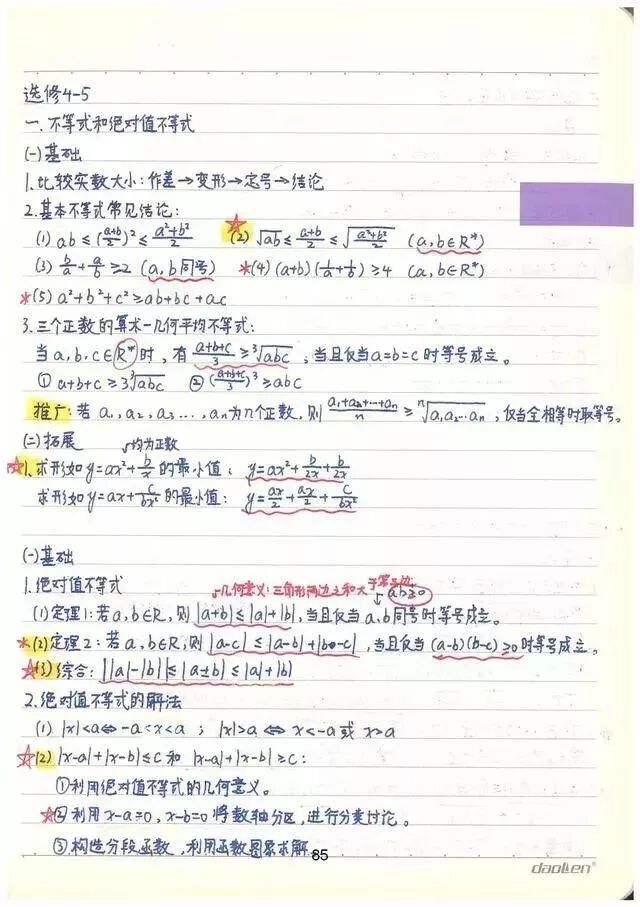 选修4-5
一. 不等式和绝对值不等式
(一)基础
1. 比较实数大小:作差→变形→定号→结论
2. 基本不等式常见结论:
(1) ab ≤ (a+b/2)² ≤ a²+b²/2 ☆(2) √ab ≤ a+b/2 ≤ √(a²+b²/2) (a,b∈R*)
(3) b/a + a/b ≥ 2 (a,b同号) *(4) (a+b)(1/a+1/b) ≥ 4 (a,b∈R*)
*(5) a²+b²+c² ≥ ab+bc+ac
3. 三个正数的算术-几何平均不等式:
当a,b,c∈R*时,有 a+b+c/3 ≥ ³√abc,当且仅当a=b=c时等号成立。
① a+b+c ≥ 3³√abc ② (a+b+c/3)³ ≥ abc
推广:若a₁,a₂,a₃...,aₙ为n个正数,则 a₁+a₂+…+aₙ/n ≥ ⁿ√a₁a₂…aₙ,仅当全相等时取等号。
(二)拓展 均为正数
☆1. 求形如y=ax²+b/x的最小值: y=ax²+b/2x+b/2x
求形如y=ax+c/bx²的最小值: y=ax/2+ax/2+c/bx²
(一)基础
1. 绝对值不等式 几何意义:三角形两边之和大于第三边 ab≥0
(1)定理1:若a,b∈R,则|a+b|≤|a|+|b|,当且仅当a,b同号时等号成立。
*(2)定理2:若a,b∈R,则|a-c|≤|a-b|+|b-c|,当且仅当(a-b)(b-c)≥0时等号成立。
☆(3)综合:||a|-|b||≤|a±b|≤|a|+|b|
2. 绝对值不等式的解法
(1) |x|<a⇔-a<x<a ; |x|>a⇔x<-a或x>a
☆(2) |x-a|+|x-b|≤c和|x-a|+|x-b|≥c:
①利用绝对值不等式的几何意义。
☆②利用x-a=0,x-b=0将数轴分区,进行分类讨论。
③构造分段函数,利用函数图象求解
85
daolen®